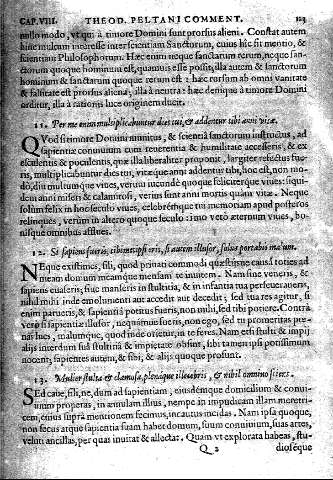 CAP. VIII. THEOD. PELTANI COMMENT. 123
nullo modo, vt qui à timore Domini sunt prorsus alieni. Constat autem
hinc nullum interesse inter scientiam Sanctorum, cuius hîc fit mentio, &
scientiam Philosophorum. Hæc tum neque sanctarum rerum, neque san-
ctorum quoque hominum est, quamuis esse possit, illa autem & sanctorum
hominum & sanctarum quoque rerum est: hæc rursum ab omni vanitate
& falsitate est prorsus aliena, illa à neutra: hæc denique à timore Domini
orditur, illa à rationis luce originem ducit.
11. Per me enim multiplicabuntur dies tui, & addentur tibi anni vitæ.
QVod si timore Domini munitus, & scientia sanctorum instructus, ad
sapientiæ conuiuium cum reuerentia & humilitate accesseris, & ex
esculentis & poculentis, quæ illa liberaliter proponit, largiter refectus fue-
ris, multiplicabuntur dies tui, vitæque anni addentur tibi, hoc est, non mo-
dò, diu multumque viues, verùm iucundè quoque feliciterque viues: siqui-
dem anni miseri & calamitosi, verius sunt anni mortis quàm vitæ. Neque
solùm felix in hoc seculo viues, celebremque tui memoriam apud posteros
relinques, verùm in altero quoque seculo: imo verò æternum viues, bo-
nisque omnibus afflues.
12. Si sapiens fueris, tibimetipsi eris, si autem illusor, solus portabis malum.
NEque existimes, fili, quod priuati commodi quæstusve causa toties ad
meam domum meamque mensam te inuitem. Nam siue veneris, &
sapiens euaseris, siue manseris in stultitia, & in infantia tua perseueraueris,
nihil mihi inde emolumenti aut accedit aut decedit; sed tua res agitur, si
enim parueris, & sapientia potitus fueris, non mihi, sed tibi potiere. Contrà
verò si sapientiæ illusor, nequamque fueris, non ego, sed tu promeritas pœ-
nas lues, malumque, quod inde orietur, in te feres. Nam etsi stulti & impij
alijs interdum sua stultitia & impietate obsint, sibi tamen ipsi potissimum
nocent; sapientes autem, & sibi, & alijs quoque prosunt.
13. Mulier stulta & clamosa, plenáque illecebris, & nihil omnino sciens.
SEd caue, fili, ne, dum ad sapientiam, eiusdemque domicilium & conui-
uium properas, in æmulam illius, nempe in impudicam illam meretri-
cem, cuius suprà mentionem fecimus, incautus incidas. Nam ipsa quoque,
non secus atque sapientia suam habet domum, suum conuiuium, suas artes,
veluti ancillas, per quas inuitat & allectat. Quam vt explorata habeas, stu-
Q 2 dioséque